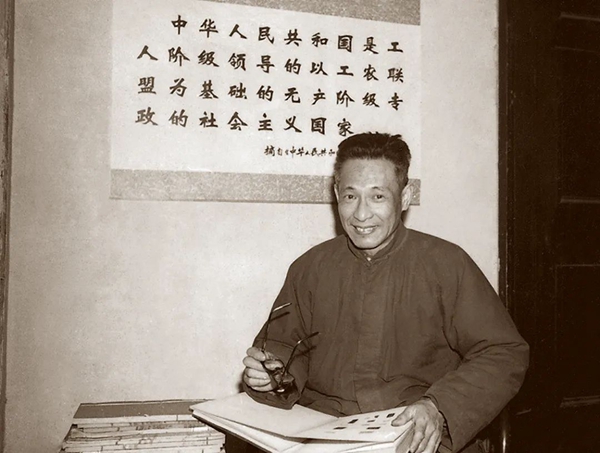 中华人民共和国是工
人阶级领导的以工农联
盟为基础的无产阶级专
政的社会主义国家
摘自《中华人民共和